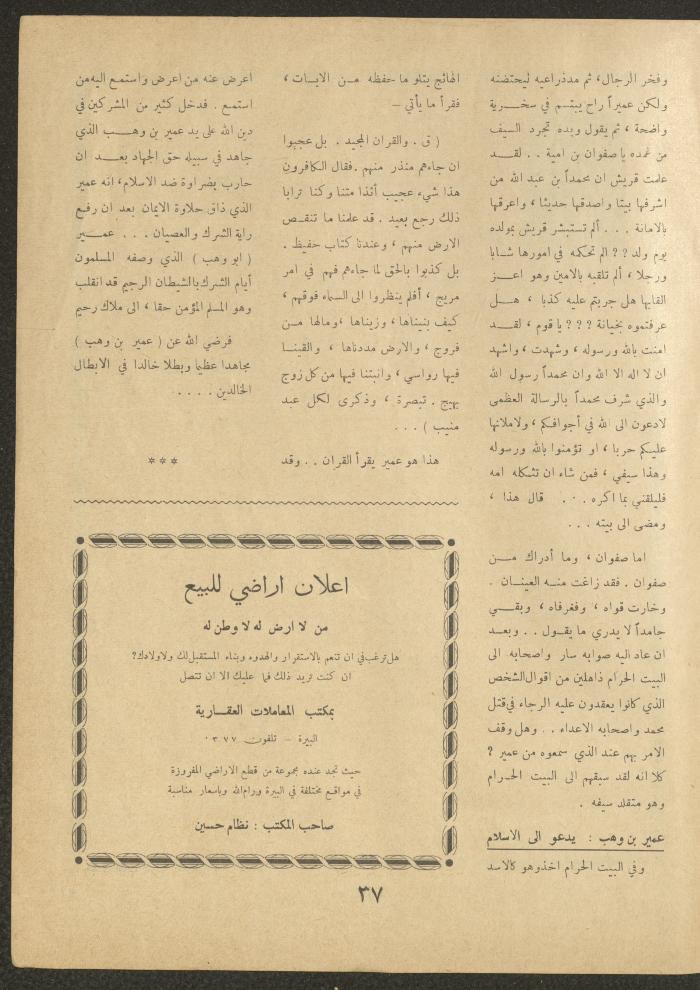 وفخر الرجال، ثم مدذراعيه ليحتضنه
ولكن عميراً راح يبتسم في سخرية
واضحة ، ثم يقول ويده تجرد السيف
من غمده ياصفوان بن امية . . لقد
علمت قريش ان محمداً بن عبد الله من
اشرفها بيتا واصدقها حديثا ، واعرقها
بالامانة . . . ألم تستبشر قريش بمولده
يوم ولد ؟ ? الم تحكمه في امورها شابا
ورجلا ، ألم تلقبه بالامين وهو اعز
القابها هل جربتم عليه كذبا ، هل
عرفتموه بخيانة ? ? ? يا قوم ، لقد
امنت بالله ورسوله ، وشهدت ، واشهد
ان لا اله الا الله وان محمداً رسول الله
والذي شرف محمداً بالرسالة العظمى
لادعون الى الله في أجوافكم ، ولاملانها
عليكم حربا ، او تؤمنوا بالله ورسوله
وهذا سيفي ، فمن شاء ان تشكله امه
فليلقني بما اكره . . . قال هذا ،
ومضى الى بيته . . .
اما صفوان ، وما أدراك من
صفوان . فقد زاغت منه العينان .
وخارت قواه ، وفغرفاه ، وبقي
جامداً لا يدري ما يقول . . وبعد
ان عاد اليه صوابه سار واصحابه الى
البيت الحرام ذاهلين من اقوال الشخص
الذي كانوا يعقدون عليه الرجاء في قتل
محمد واصحابه الاعداء . . وهل وقف
الامر بهم عند الذي سمعوه من عمير ?
كلا انه لقد سبقهم الى البيت الحرام
وهو متقلد سيفه .
عمير بن وهب : يدعو الى الاسلام
وفي البيت الحرام اخذوهو كالاسد
الهائج يتلو ما حفظه من الايات ،
فقرأ ما يأتي –
( ق . والقران المجيد . بل عجبوا
ان جاءهم منذر منهم .فقال الكافرون
هذا شيء عجيب أئذا متنا وكنا ترابا
ذلك رجع بعيد . قد علمنا ما تنقص
الارض منهم ، وعندنا كتاب حفيظ .
بل كذبوا بالحق لما جاءهم فهم في امر
مريج ، أفلم ينظروا الى السماء فوقهم ،
كيف بنيناها ، وزيناها ،ومالها من
فروج ، والارض مددناها ، والقينا
فيها رواسي ، وانبتنا فيها من كل زوج
بهيج . تبصرة ، وذكرى لكل عبد
منيب ) . . .
هذا هو عمير يقرأ القران . . وقد
اعرض عنه من اعرض واستمع اليه من
استمع . فدخل كثير من المشركين في
دين الله على يد عمير بن وهب الذي
جاهد في سبيله حق الجهاد بعد ان
حارب بضراوة ضد الاسلام، انه عمير
الذي ذاق حلاوة الايمان بعد ان رفع
راية الشرك والعصيان . . . عمير
( ابو وهب ) الذي وصفه المسلمون
أيام الشرك بالشيطان الرجيم قد انقلب
وهو المسلم المؤمن حقا ، الى ملاك رحيم
فرضي الله عن ( عمير بن وهب )
مجاهدا عظيما وبطلا خالدا في الابطال
الخالدين . . . .
***
اعلان اراضي للبيع
من لا ارض له لا وطن له
هل ترغب في ان تنعم بالاستقرار والهدوء وبناء المستقبل لك ولاولادك؟
ان كنت تريد ذلك فما عليك الا ان تتصل
بمكتب المعاملات العقارية
البيرة – تلفون ٠٣٧٧
حيث تجد عنده مجموعة من قطع الاراضي المفروزة
في مواقع مختلفة في البيرة ورام الله وباسعار مناسبة
صاحب المكتب : نظام حسين
٣٧